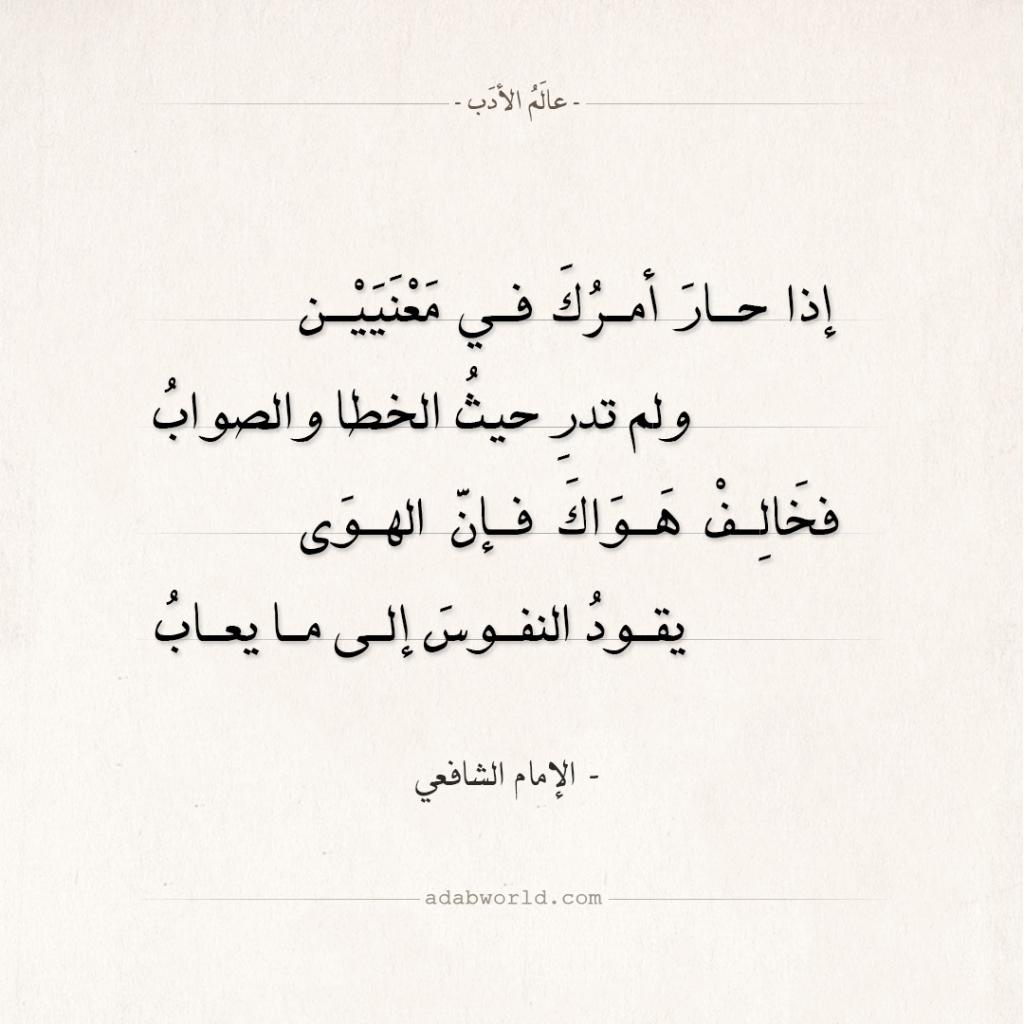 - عالَمُ الأدَب -
إذا حـــارَ أمــرُكَ فــي مَعْنَيَيْــن
ولم تدرِ حيثُ الخطا والصوابُ
فخَالِــفْ هَــوَاكَ فــإنّ الهــوَى
يقــودُ النفــوسَ إلــى مــا يعــابُ
- الإمام الشافعي
adabworld.com